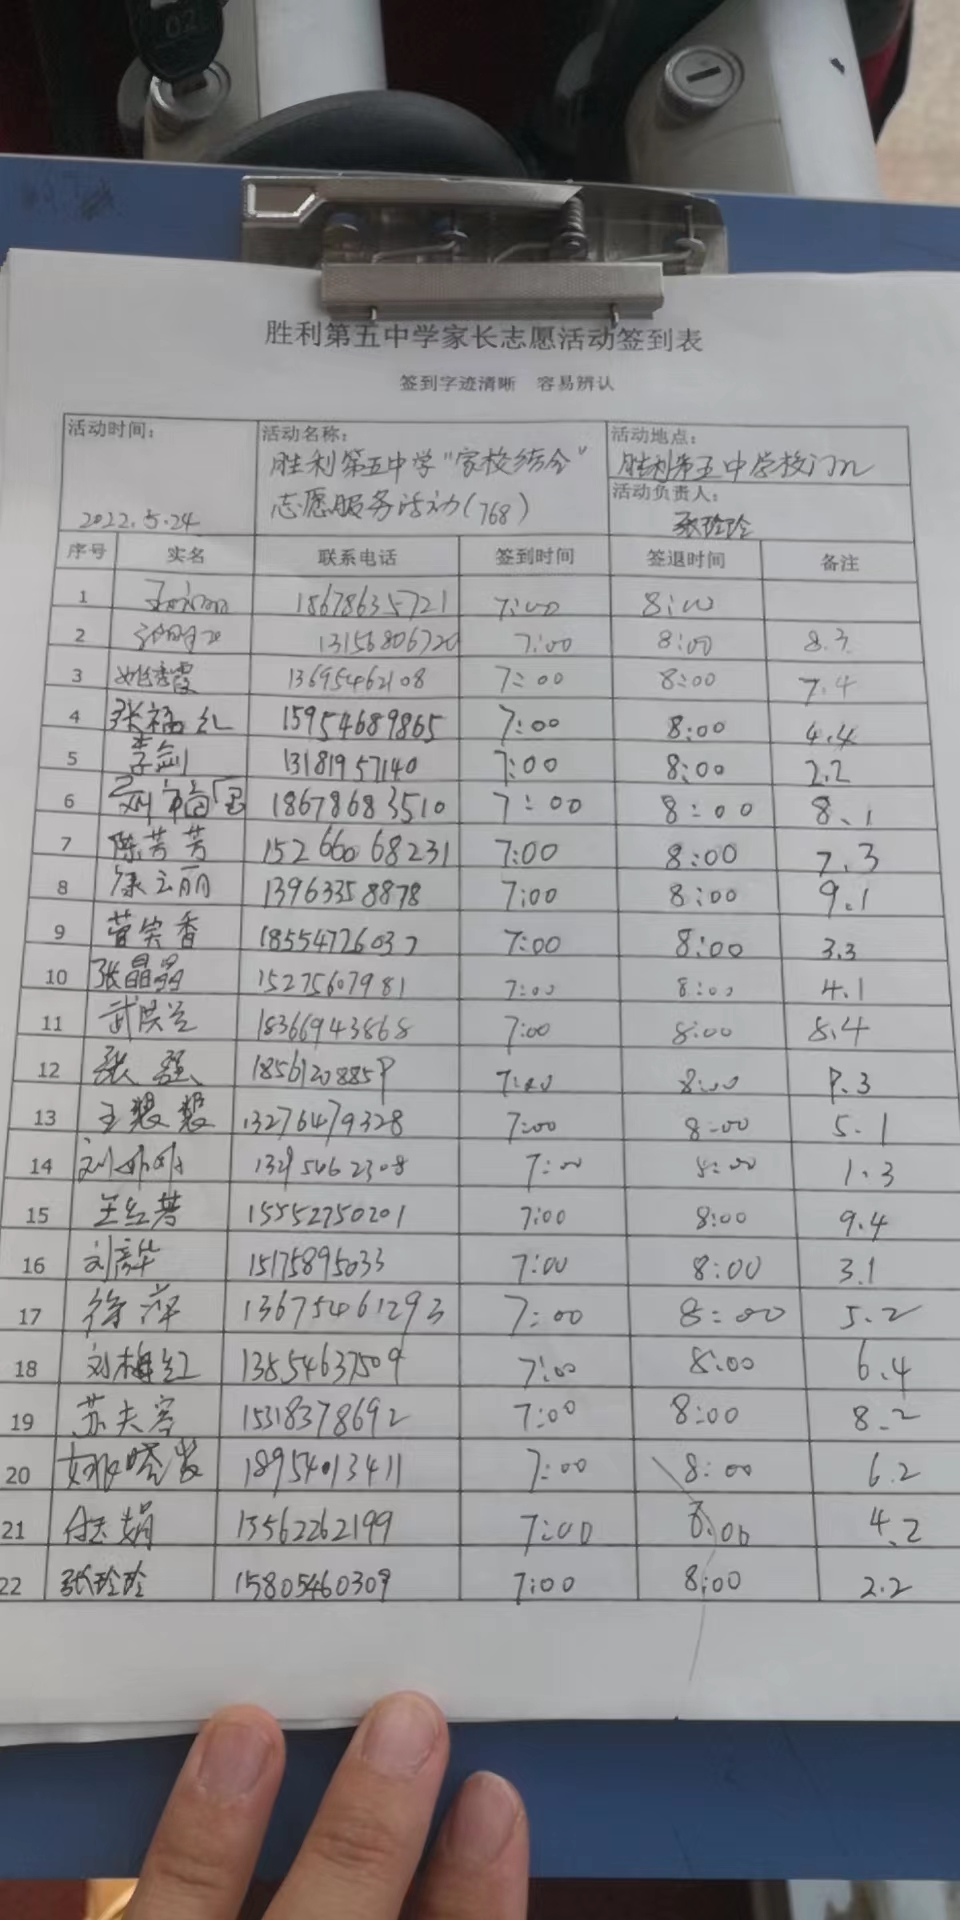 02
胜利第五中学家长志愿活动签到表
签到字迹清晰 容易辨认
活动时间: 2022.5.24
活动名称: 胜利第五中学"家校结合"
志愿服务活动(768)
活动地点: 胜利第五中学校门口
活动负责人: 张玲玲
序号 实名 联系电话 签到时间 签退时间 备注
1 18678635721 7:00 8:00
2 13156806720 7:00 8:00 8.3
3 姚秀霞 13695462108 7:00 8:00 7.4
4 张福红 15954689865 7:00 8:00 4.4
5 李剑 13181957140 7:00 8:00 2.2
6 18678683510 7:00 8:00 8.1
7 陈芳芳 15266068231 7:00 8:00 7.3
8 徐云丽 13963358878 7:00 8:00 9.1
9 18554726037 7:00 8:00 3.3
10 张晶晶 15275607981 7:00 8:00 4.1
11 武洪兰 18366943868 7:00 8:00 8.4
12 张强 7:00 8:00
13 13276479328 7:00 8:00 5.1
14 7:00 8:00 1.3
15 王红芳 15552750201 7:00 8:00 9.4
16 刘彦华 15175895033 7:00 8:00 3.1
17 徐萍 13675461293 7:00 8:00 5.2
18 刘梅红 13854637509 7:00 8:00 6.4
19 苏夫容 15318378692 7:00 8:00 8.2
20 18954013411 7:00 8:00 6.2
21 任娟 13562262199 7:00 8:00 4.2
22 张玲玲 15805460309 7:00 8:00 2.2